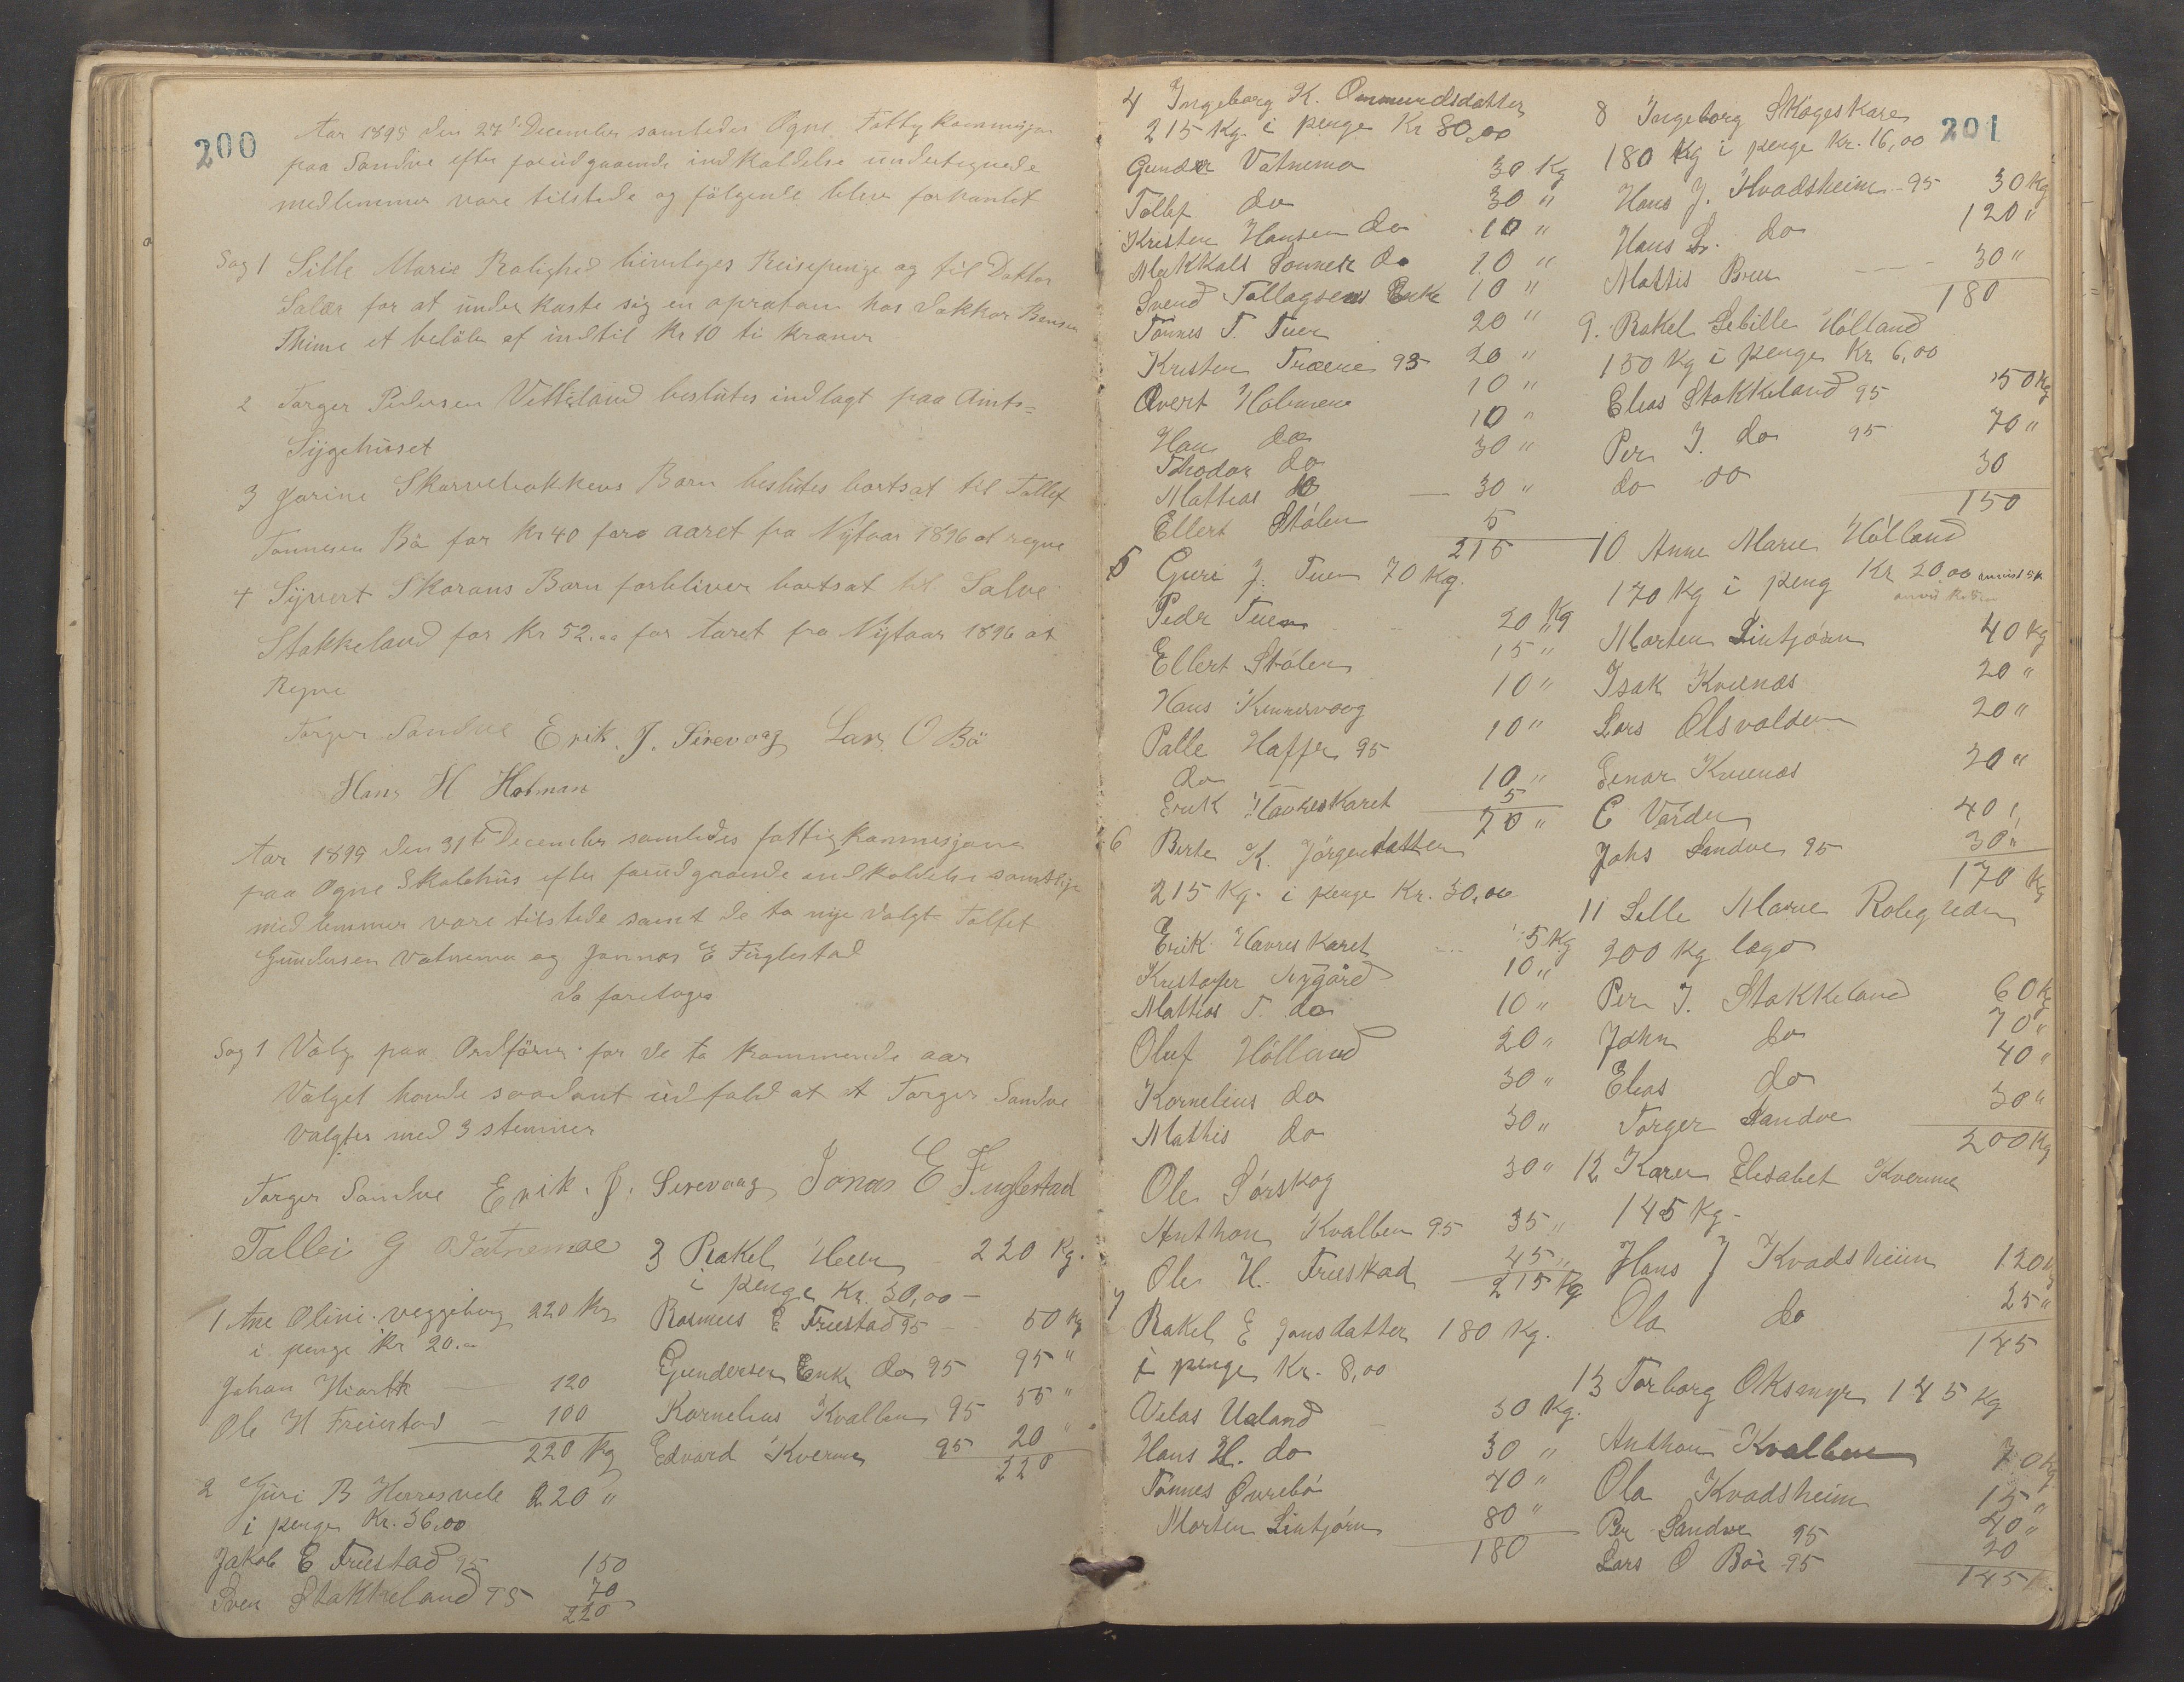 200
Aar 1895 den 27de December samledes Ogne Fattigkommisjon
paa Sandve efter forudgaaende indkaldelse undertegnede
medlemmer vare tilstede og følgende blev forhanlet
Sag 1 Sille Marie Rolighed bevilges Reisepenge og til Doktor
Salær for at underkaste sig en opration hos Doktor Bensen
Thime et beløb af indtil Kr 10 ti kroner
2 Torger Pedersen Vetteland beslutes indlagt paa Amts=
Sygehuset
3 Jorine Skarvebakkens Barn beslutes bortsat til Tollef
Tonnesen Bö for Kr 40 foro aaret fra Nytaar 1896 at regne
4 Syvert Skorans Barn forbliver bortsat til Salve
Stokkeland for Kr 52.00 for Aaret fra Nytaar 1896 at
Regne
Torger Sandve Erik. J. Sirevaag Lars O Bö
Hans H Hotman
Aar 1895 den 31te December samledes fattigkommisjonen
paa Ogne Skolehus efter forudgaaende indkaldelse samtlige
medlemmer vare tilstede samt de to nye valgt Tollef
Gundersen Vatnemo og Jonnas E Fuglestad
da foretoges
Sag 1 Valg paa Ordförer for de to kommende aar
Valget havde saadant udfald at A Torger Sandve
valgtes med 3 stemmer
Torger Sandve Erik. J. Sirevaag Jonas E Fuglestad
Tallei G Vatnemoe
1 Ane Oline veggeberg 220 Kg
i penge Kr 20.00
Johan Hiortt — 120
Ole H Freiestad — 100
220 Kg
2 Guri B Herresvele 220 "
i penge Kr. 36,00
Jakob E Friestad 95 150
Sven Stokkeland 95 70
220
3 Rakel 220 Kg.
i penge Kr. 30,00 —
Rasmus E Friestad 95 — 50 Kg
Gundersen Enke do 95 95 "
Kornelius Kvalben 95 55 "
Edvard Kverme 95 20 "
220
4 Ingeborg K. Ommundsdatter
215 Kg. i penge Kr 80,00
Gunder Vatnemo 30 Kg
Tollef do 30 "
Kristen Hansen do 10 "
Mekkal Sonnesk do 10 "
Svend Tollagsens Enke 10 "
Tonnes T. Tuen 20 "
Kristen Træene 95 20 "
Overt Holmene 10 "
Han do 10 "
Thodor do 30 "
Mathias do — 30 "
Ellert Stölen 5
215
5 Guri J. Tuen 70 Kg.
Peder Tuen 20 Kg
Ellert Stölen 15 "
Hans Kinnervaag 10 "
Palle Haffer 95 10 "
do 10 "
Erik Havreskaret 5
70 "
6 Berte K. Jörgensdatter
215 Kg. i penge Kr. 30,00
Erik Havreskaret 5 Kg
Kristofer Nygård 10 "
Mathias T. do 10 "
Oluf Hölland 20 "
Kornelius do 30 "
Mathis do 30 "
Ole Sörskog 30 "
Anthon Kvalben 95 35 "
Ole H. Frieskad 45 "
215 Kg
7 Rakel E Jonsdatter 180 Kg.
i penge Kr. 8,00
Velas Ualand 30 Kg.
Hans H. do 30 "
Tonnes Övrebö 40 "
Morten Lintjörn 80 "
180
201
8 Ingeborg Skogeskare
180 Kg i penge Kr. 16,00
Hans J. Kvadsheim 95 30 Kg
Hans L. do 120 "
Mattis Bru — 30 "
180
9. Rakel Sebille Hölland
150 Kg i penge Kr 6,00
Elias Stokkeland 95 50 Kg
Per J. do 95 70 "
do do 30
150
10 Anne Marie Hölland
170 Kg i peng Kr 20,00
Morten Lintjörn 40 Kg
Isak Kvienæs 20 "
Lars Olsvolden 20 "
Einar Kvienæs 20 "
E Varden 40 "
Johs Sandve 95 30 "
170 Kg
11 Sille Marie Roligheden
200 Kg lago
Per J. Stokkeland 60 Kg
John do 70 "
Elias do 40 "
Torger Sandve 30 "
200 Kg
12 Karen Elisabet Kverme
145 Kg.
Hans J Kvadsheim 120 Kg
Ola do 25 "
145
13 Torborg Oksmyr 145 Kg
Anthon Kvalben 70 Kg
Ola Kvadsheim 15 "
Per Sandve 95 40 "
Lars O Böe 95 20
145 K.